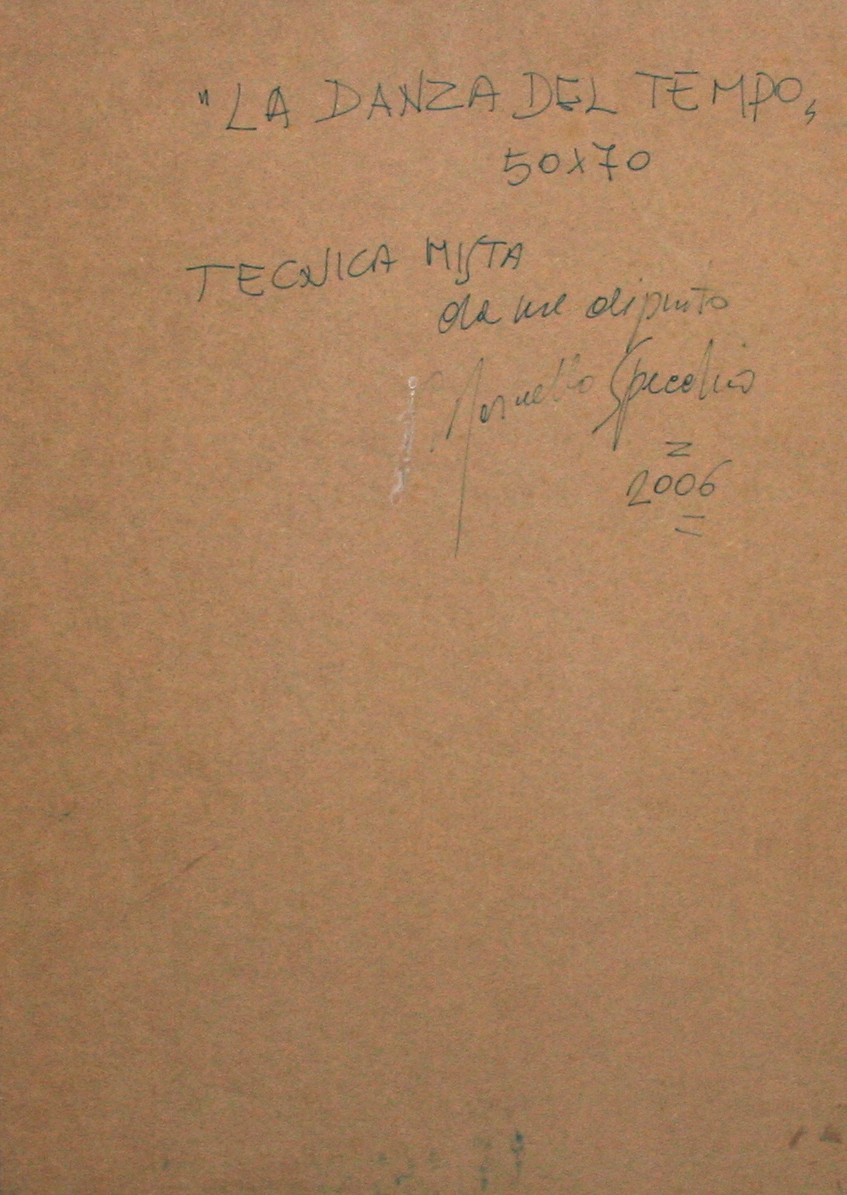 "LA DANZA DEL TEMPO„
50x70
TECNICA MISTA
da me dipinto
Marcello Specchio
2006